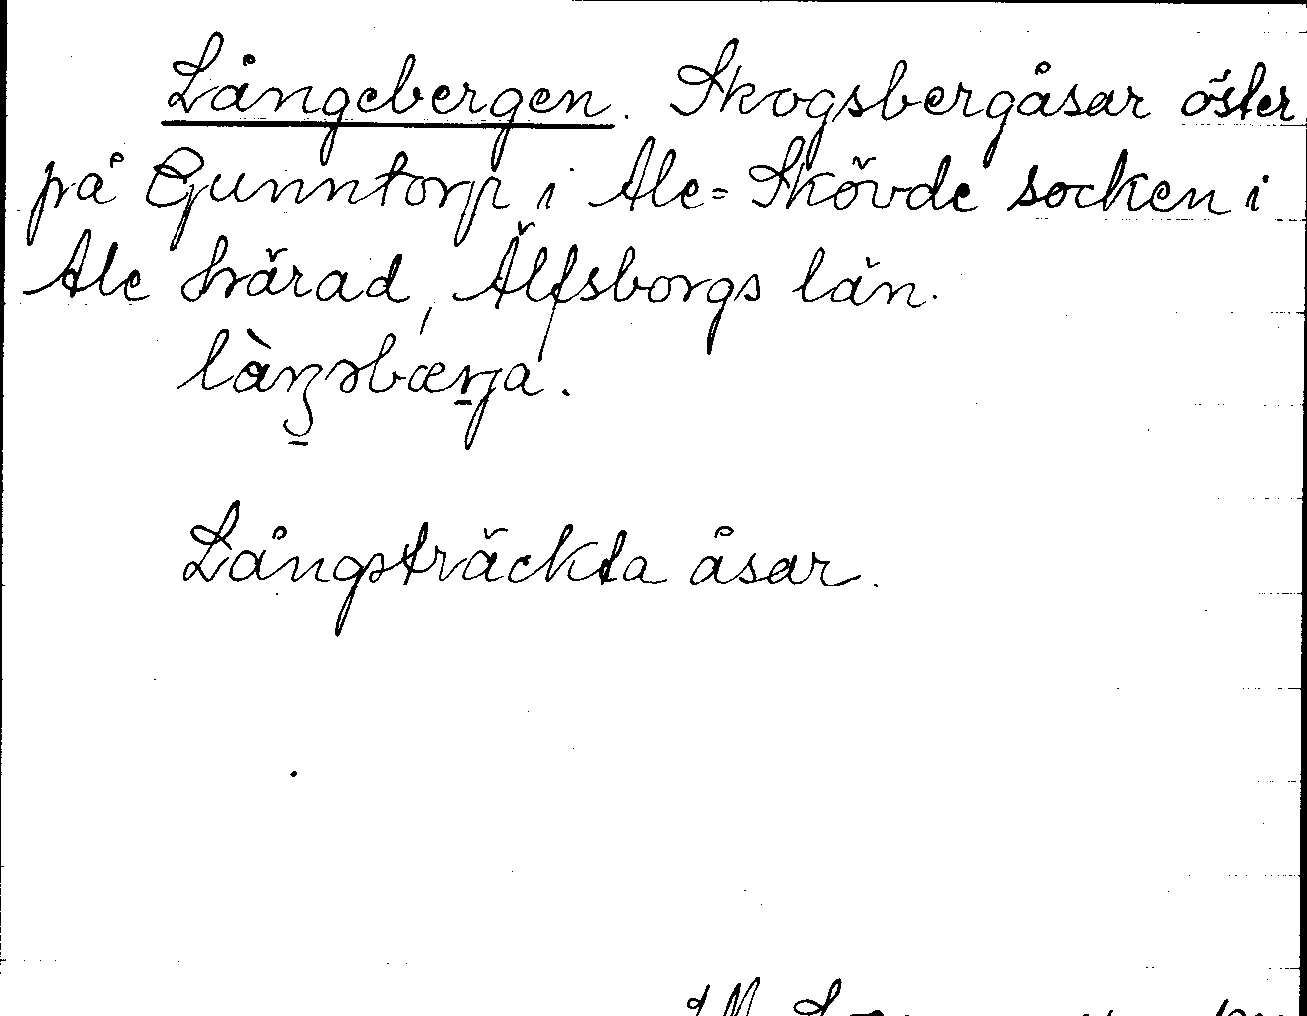 Långebergen. Skogsbergåsar öster
på Gunntorp i Ale-Skövde socken i
Ale härad, Älfsborgs län.
Långsträckta åsar.